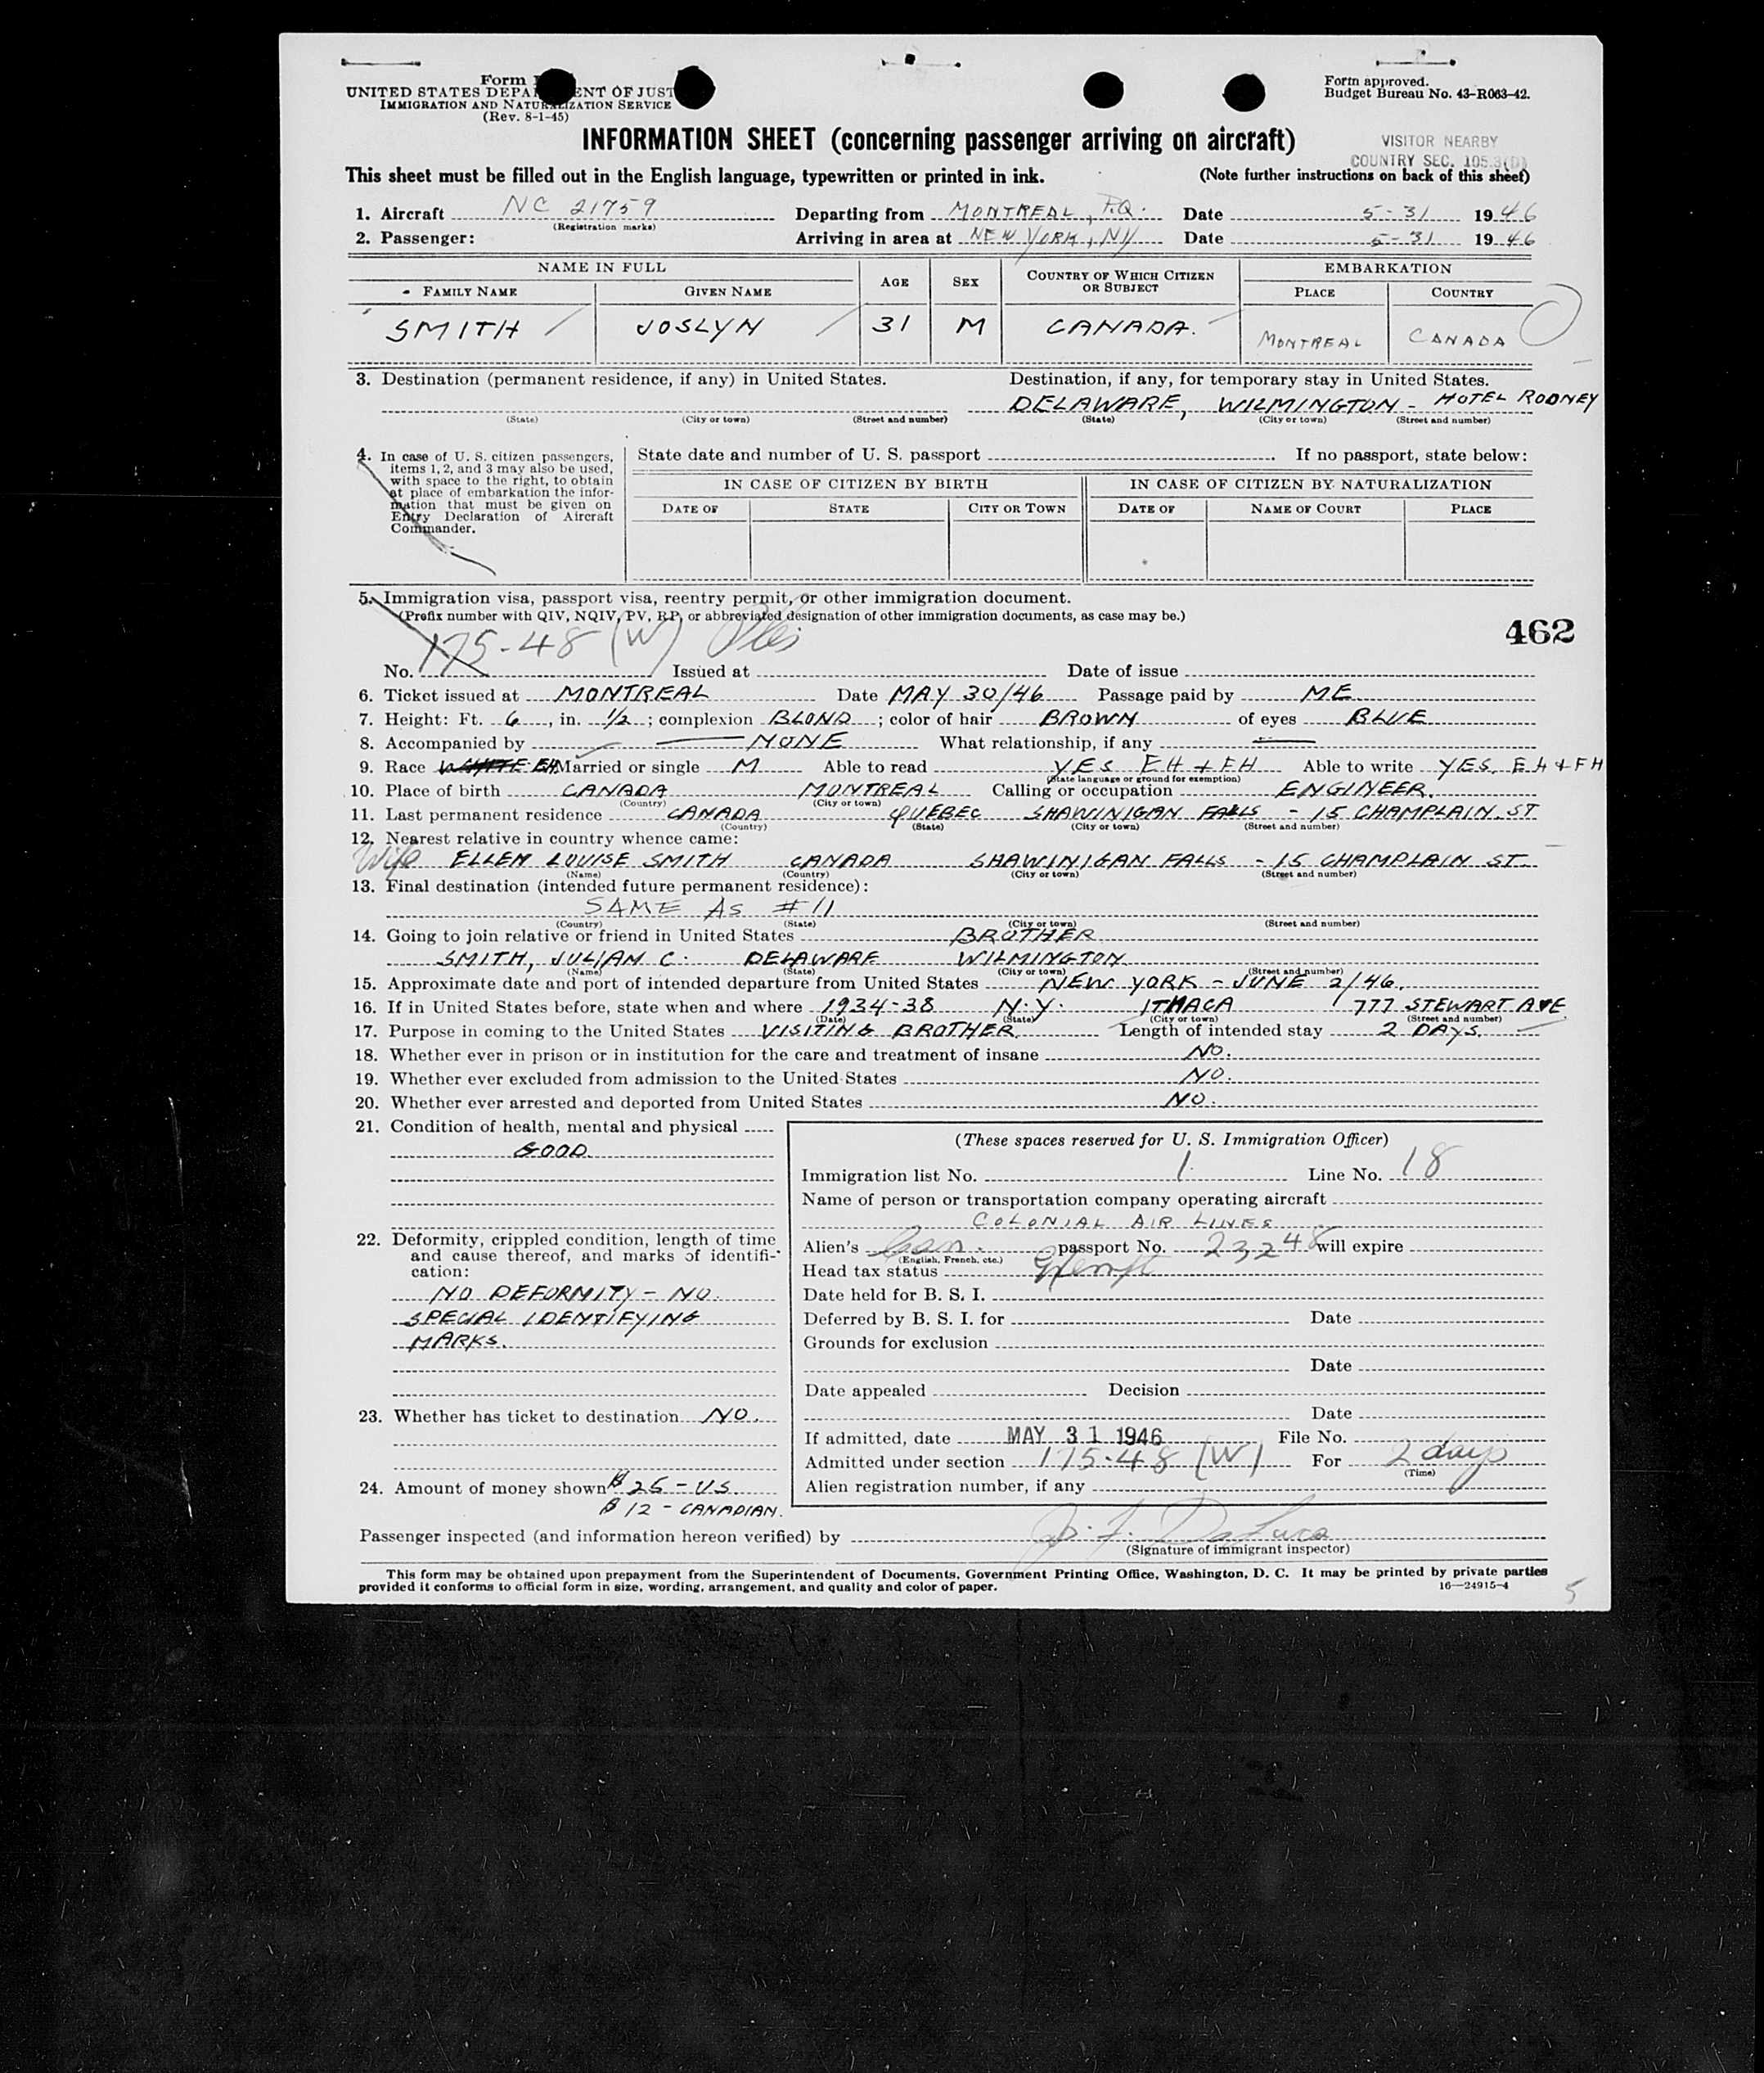 Form
UNITED STATES DEPA ENT OF JUST
IMMIGRATION AND NATURALIZATION SERVICE
(Rev. 8-1-45)
Form approved.
Budget Bureau No. 43-R063-42.
INFORMATION SHEET (concerning passenger arriving on aircraft)
VISITOR NEARBY
COUNTRY SEC. 105.3(D)
This sheet must be filled out in the English language, typewritten or printed in ink. (Note further instructions on back of this sheet)
1. Aircraft NC 21759 Departing from MONTREAL, P.Q. Date 5-31 1946
(Registration marks)
2. Passenger: Arriving in area at NEW YORK, NY Date 5-31 1946
NAME IN FULL AGE SEX COUNTRY OF WHICH CITIZEN OR SUBJECT EMBARKATION
FAMILY NAME GIVEN NAME PLACE COUNTRY
SMITH JOSLYN 31 M CANADA. MONTREAL CANADA
3. Destination (permanent residence, if any) in United States. Destination, if any, for temporary stay in United States.
DELAWARE, WILMINGTON - HOTEL RODNEY
(State) (City or town) (Street and number) (State) (City or town) (Street and number)
4. In case of U. S. citizen passengers, items 1, 2, and 3 may also be used, with space to the right, to obtain at place of embarkation the information that must be given on Entry Declaration of Aircraft Commander.
State date and number of U. S. passport If no passport, state below:
IN CASE OF CITIZEN BY BIRTH IN CASE OF CITIZEN BY NATURALIZATION
DATE OF STATE CITY OR TOWN DATE OF NAME OF COURT PLACE
5. Immigration visa, passport visa, reentry permit, or other immigration document.
(Prefix number with QIV, NQIV, PV, RP, or abbreviated designation of other immigration documents, as case may be.)
462
No. 175-48 (W) Issued at Date of issue
6. Ticket issued at MONTREAL Date MAY 30/46 Passage paid by ME
7. Height: Ft. 6, in. 1/2; complexion BLOND; color of hair BROWN of eyes BLUE
8. Accompanied by NONE What relationship, if any
9. Race WHITE EH Married or single M Able to read YES EH + FH Able to write YES. EH + FH
(State language or ground for exemption)
10. Place of birth CANADA MONTREAL Calling or occupation ENGINEER.
(Country) (City or town)
11. Last permanent residence CANADA QUEBEC SHAWINIGAN FALLS - 15 CHAMPLAIN ST
(Country) (State) (City or town) (Street and number)
12. Nearest relative in country whence came:
Wife ELLEN LOUISE SMITH CANADA SHAWINIGAN FALLS - 15 CHAMPLAIN ST
(Name) (Country) (City or town) (Street and number)
13. Final destination (intended future permanent residence):
SAME AS #11
(Country) (State) (City or town) (Street and number)
14. Going to join relative or friend in United States BROTHER
SMITH, JULIAN C. DELAWARE WILMINGTON
(Name) (State) (City or town) (Street and number)
15. Approximate date and port of intended departure from United States NEW YORK - JUNE 2/46.
16. If in United States before, state when and where 1934-38 N.Y. ITHACA 777 STEWART AVE
(Date) (State) (City or town) (Street and number)
17. Purpose in coming to the United States VISITING BROTHER Length of intended stay 2 DAYS.
18. Whether ever in prison or in institution for the care and treatment of insane NO.
19. Whether ever excluded from admission to the United States NO.
20. Whether ever arrested and deported from United States NO.
21. Condition of health, mental and physical
GOOD.
22. Deformity, crippled condition, length of time and cause thereof, and marks of identification:
NO DEFORMITY - NO.
SPECIAL IDENTIFYING
MARKS.
23. Whether has ticket to destination NO.
24. Amount of money shown $25 - US
$12 - CANADIAN.
(These spaces reserved for U. S. Immigration Officer)
Immigration list No. 1 Line No. 18
Name of person or transportation company operating aircraft
COLONIAL AIR LINES
Alien's Can. passport No. 23248 will expire
(English, French, etc.)
Head tax status Exempt
Date held for B. S. I.
Deferred by B. S. I. for Date
Grounds for exclusion
Date
Date appealed Decision
Date
If admitted, date MAY 31 1946 File No.
Admitted under section 175.48 (W) For 2 days
(Time)
Alien registration number, if any
Passenger inspected (and information hereon verified) by
(Signature of immigrant inspector)
This form may be obtained upon prepayment from the Superintendent of Documents, Government Printing Office, Washington, D. C. It may be printed by private parties
provided it conforms to official form in size, wording, arrangement, and quality and color of paper. 16—24915-4
5